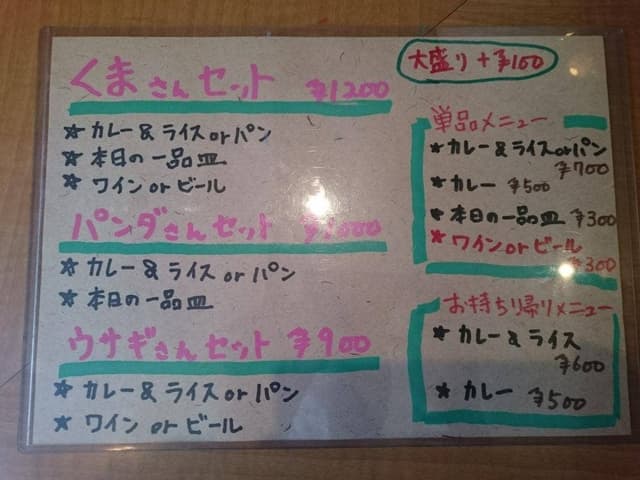 くまさんセット ¥1200
★ カレー&ライスorパン
★ 本日の一品皿
★ ワインorビール
パンダさんセット ¥1000
★ カレー&ライスorパン
★ 本日の一品皿
ウサギさんセット ¥900
★ カレー&ライスorパン
★ ワインorビール
大盛り+¥100
単品メニュー
★ カレー&ライスorパン
¥700
★ カレー ¥500
★ 本日の一品皿 ¥300
★ ワインorビール
¥300
お持ち帰りメニュー
★ カレー&ライス
¥600
★ カレー ¥500